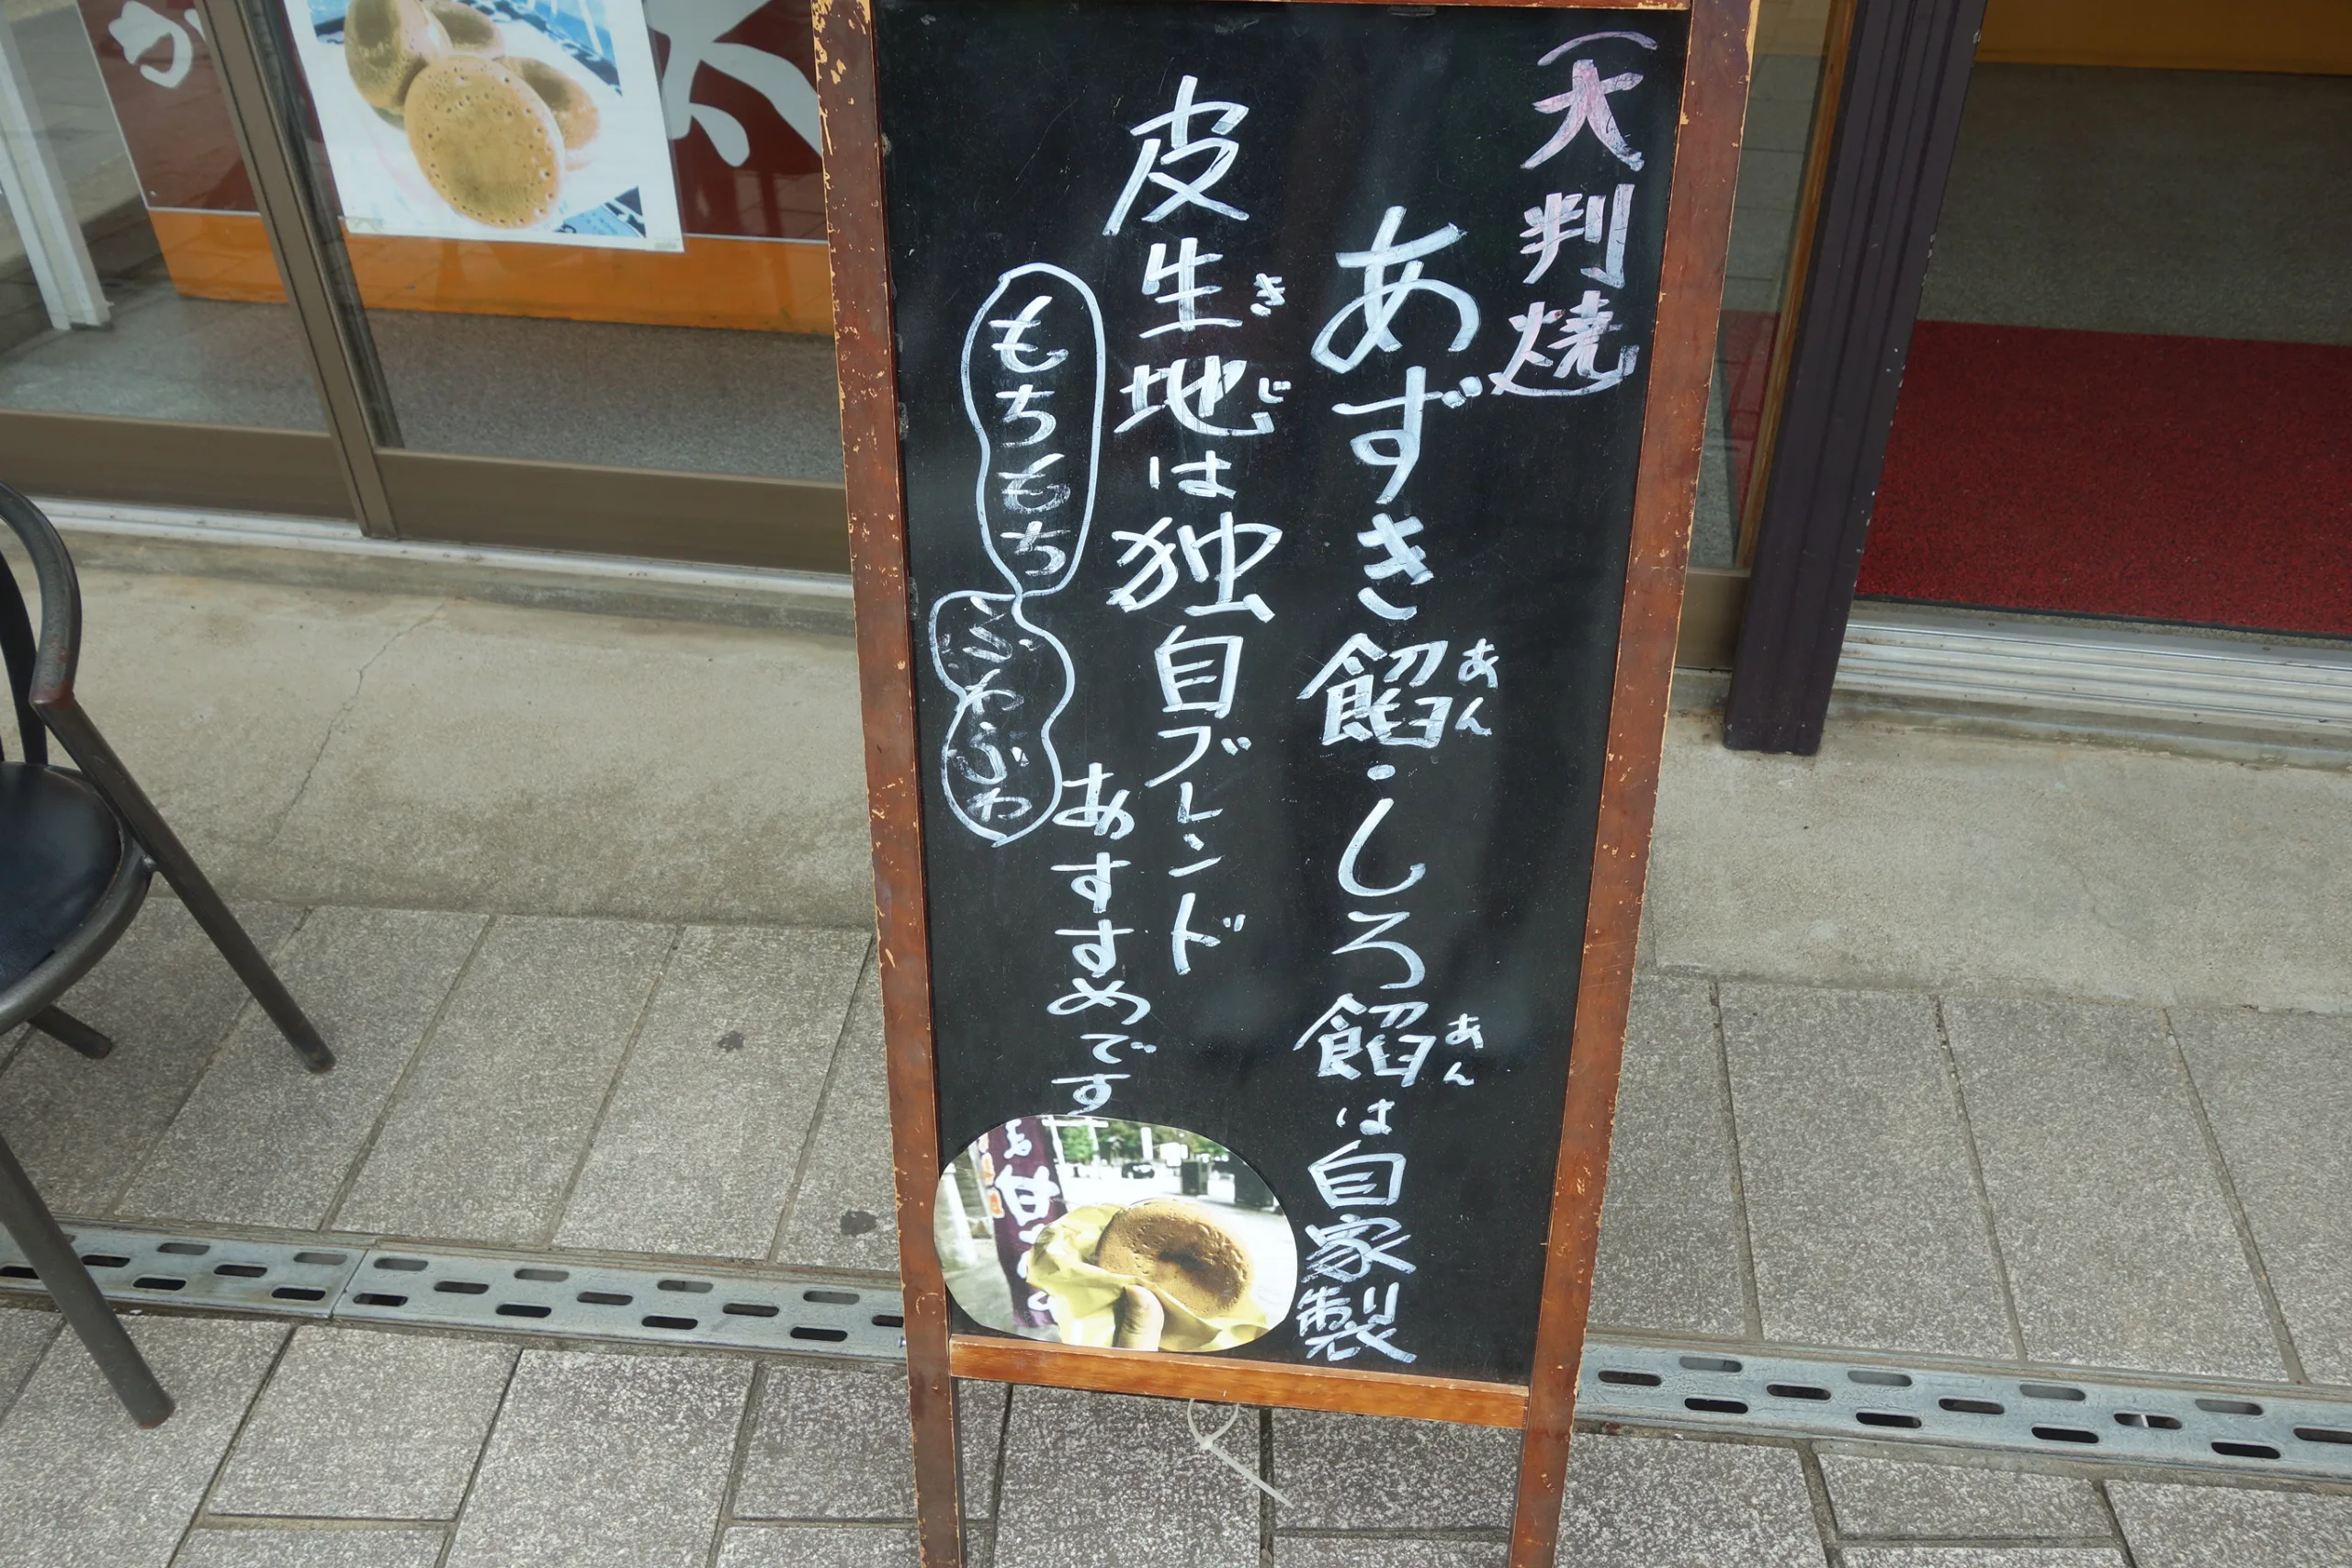 （大判焼）
あずき餡・しろ餡は自家製
あん
あん
皮生地は独自ブレンド
きじ
もちもち
ふわふわ
おすすめです